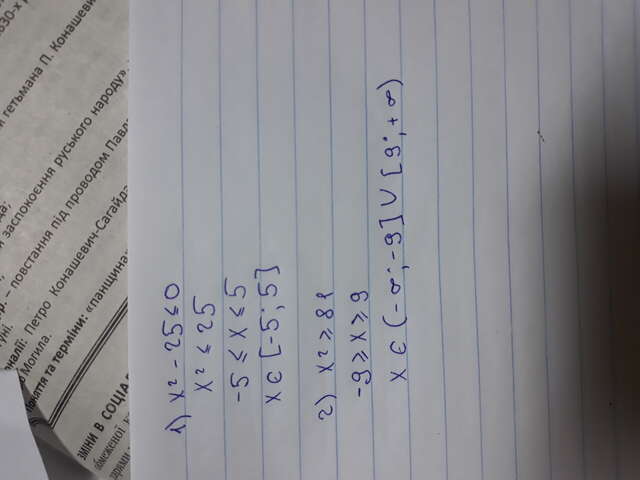 1) x² - 25 ≤ 0
x² ≤ 25
-5 ≤ x ≤ 5
x ∈ [-5; 5]
2) x² ≥ 81
-9 ≥ x ≥ 9
x ∈ (-∞; -9] ∪ [9; +∞)
гетьмана П. Конашевич
и заспокоєння руського народу»
– повстання під проводом Павл
Петро Конашевич-Сагайда
Могила.
та терміни: «панщина
ЗМІНИ В СОЦІА
обмеженої